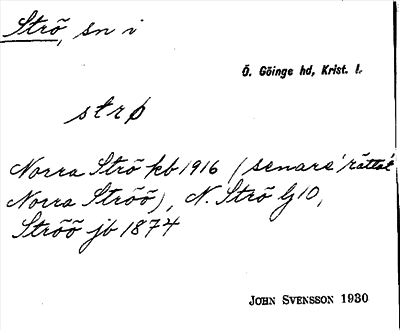 Strö, sn i
Ö. Göinge hd, Krist. l.
strø
Norra Strö kb 1916 (senare rättat
Norra Ströö), N. Strö lj 10,
Ströö jb 1874
JOHN SVENSSON 1930